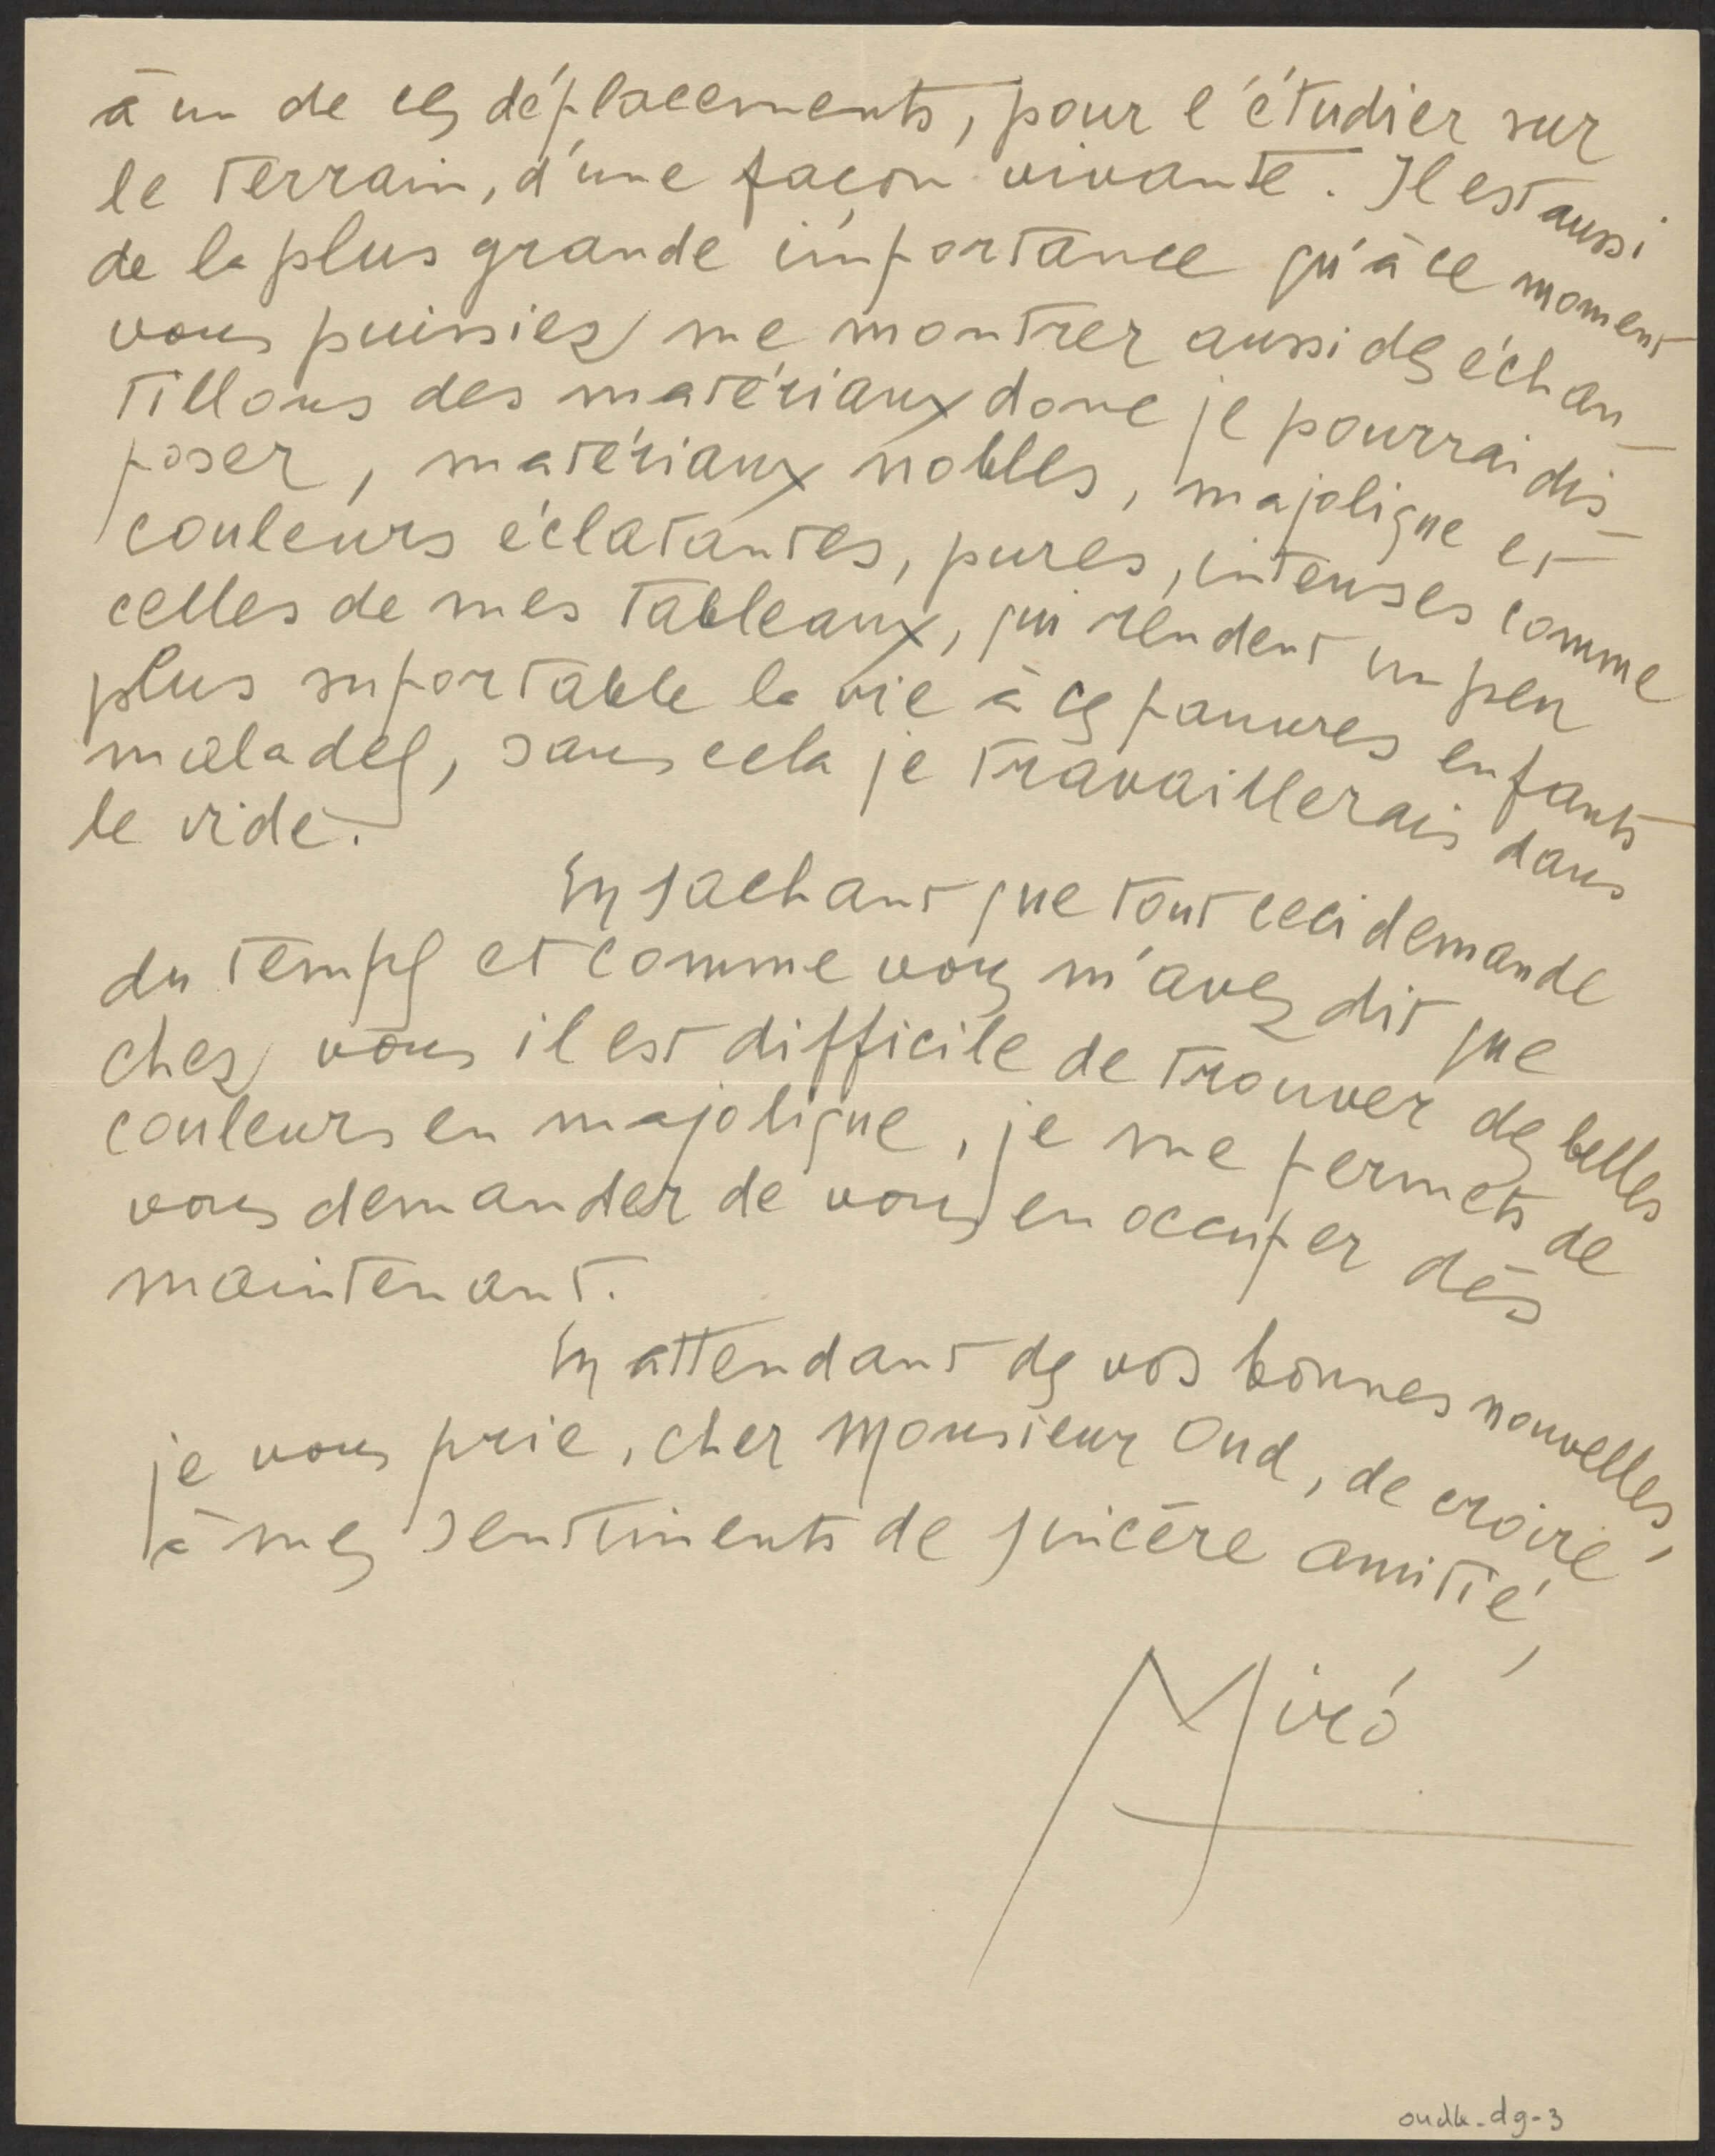 à un de ces déplacements, pour l'étudier sur
le terrain, d'une façon vivante. Il est aussi
de la plus grande importance qu'à ce moment
vous puissiez me montrer aussi des échan-
tillons des matériaux dont je pourrai dis-
poser, matériaux nobles, majolique et
couleurs éclatantes, pures, intenses comme
celles de mes tableaux, qui rendent un peu
plus suportable la vie à ces pauvres enfants
malades, sans cela je travaillerais dans
le vide.
En sachant que tout ceci demande
du temps et comme vous m'avez dit que
chez vous il est difficile de trouver des belles
couleurs en majolique, je me permets de
vous demander de vous en occuper dès
maintenant.
En attendant de vos bonnes nouvelles,
je vous prie, cher Monsieur Oud, de croire
à mes sentiments de sincère amitié,
Miró
oudk-dg-3